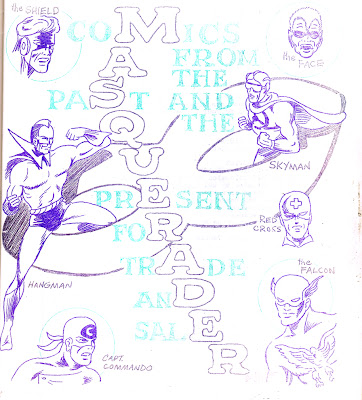 the SHIELD
COMICS
FROM
THE
PAST AND
THE
PRESENT
FOR
TRADE
AND
SALE
MASQUERADER
the FACE
SKYMAN
HANGMAN
RED
CROSS
the
FALCON
CAPT.
COMMANDO